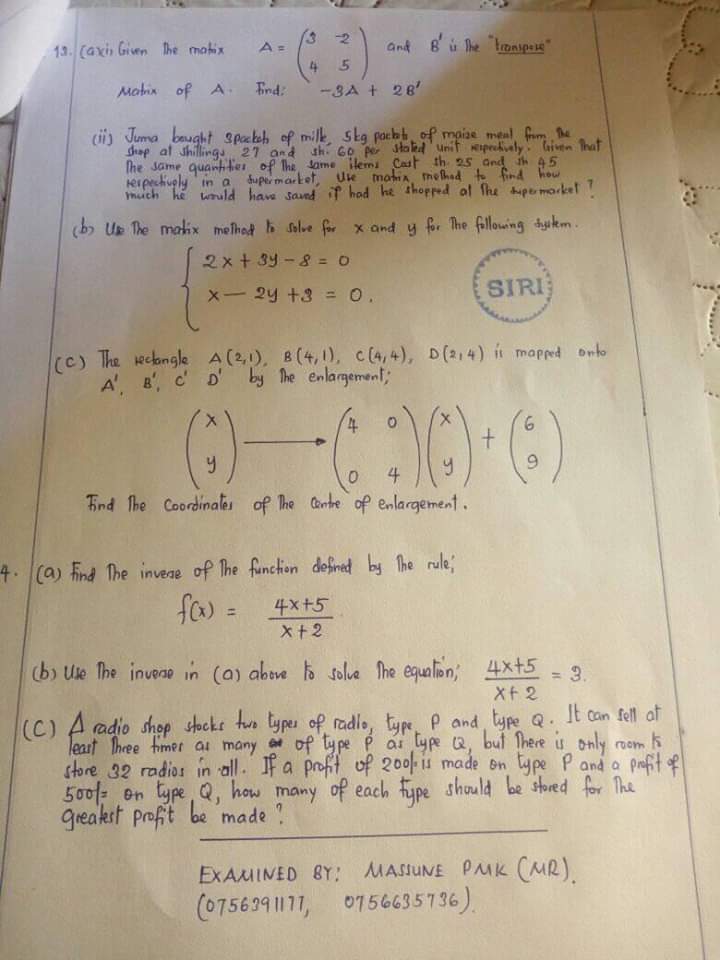 13. (a)(i) Given The matrix A = (3 -2 4 5) and B' is The "transpose"
Matrix of A. Find: -3A + 2B'
(ii) Juma bought 3packets of milk, 5kg packets of maize meal from The
shop at shillings 27 and sh. 60 per stated unit respectively. Given That
The same quantities of The same items cost sh. 25 and sh 45
respectively in a supermarket, Use matrix method to find how
much he would have saved if had he shopped at The supermarket?
(b) Use The matrix method to solve for x and y for The following system.
2x + 3y - 8 = 0
x - 2y + 3 = 0.
SIRI
(C) The rectangle A(2,1), B(4,1), C(4,4), D(2,4) is mapped onto
A', B', C' D' by The enlargement;
(x y) → (4 0 0 4) (x y) + (6 9)
Find The Coordinates of The Centre of enlargement.
4. (a) Find The inverse of The function defined by The rule;
f(x) = 4x+5
x+2
(b) Use The inverse in (a) above to solve The equation; 4x+5 = 3.
x+2
(C) A radio shop stocks two types of radio, type P and type Q. It can sell at
least Three times as many of type P as type Q, but There is only room to
store 32 radios in all. If a profit of 200/= is made on type P and a profit of
500/= on type Q, how many of each type should be stored for The
greatest profit be made?
EXAMINED BY: MASSUNE PMK (MR).
(0756391177, 0756635736).